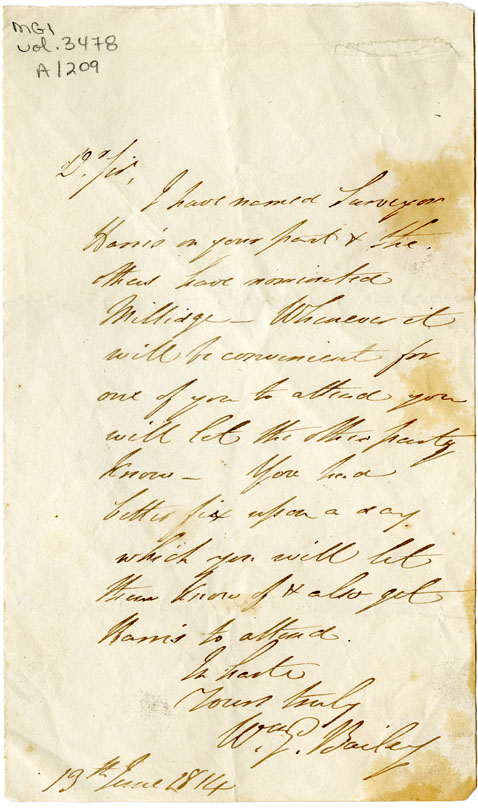 MG1
vol. 3478
A1209
Dr. Sir,
I have named Surveyor
Harris on your part & the
others have nominated
Millidge — Whenever it
will be convenient for
one of you to attend you
will let the other party
know — You had
better fix upon a day
which you will let
them know of & also get
Harris to attend.
In haste
Yours truly
Bailey
19th June 1814